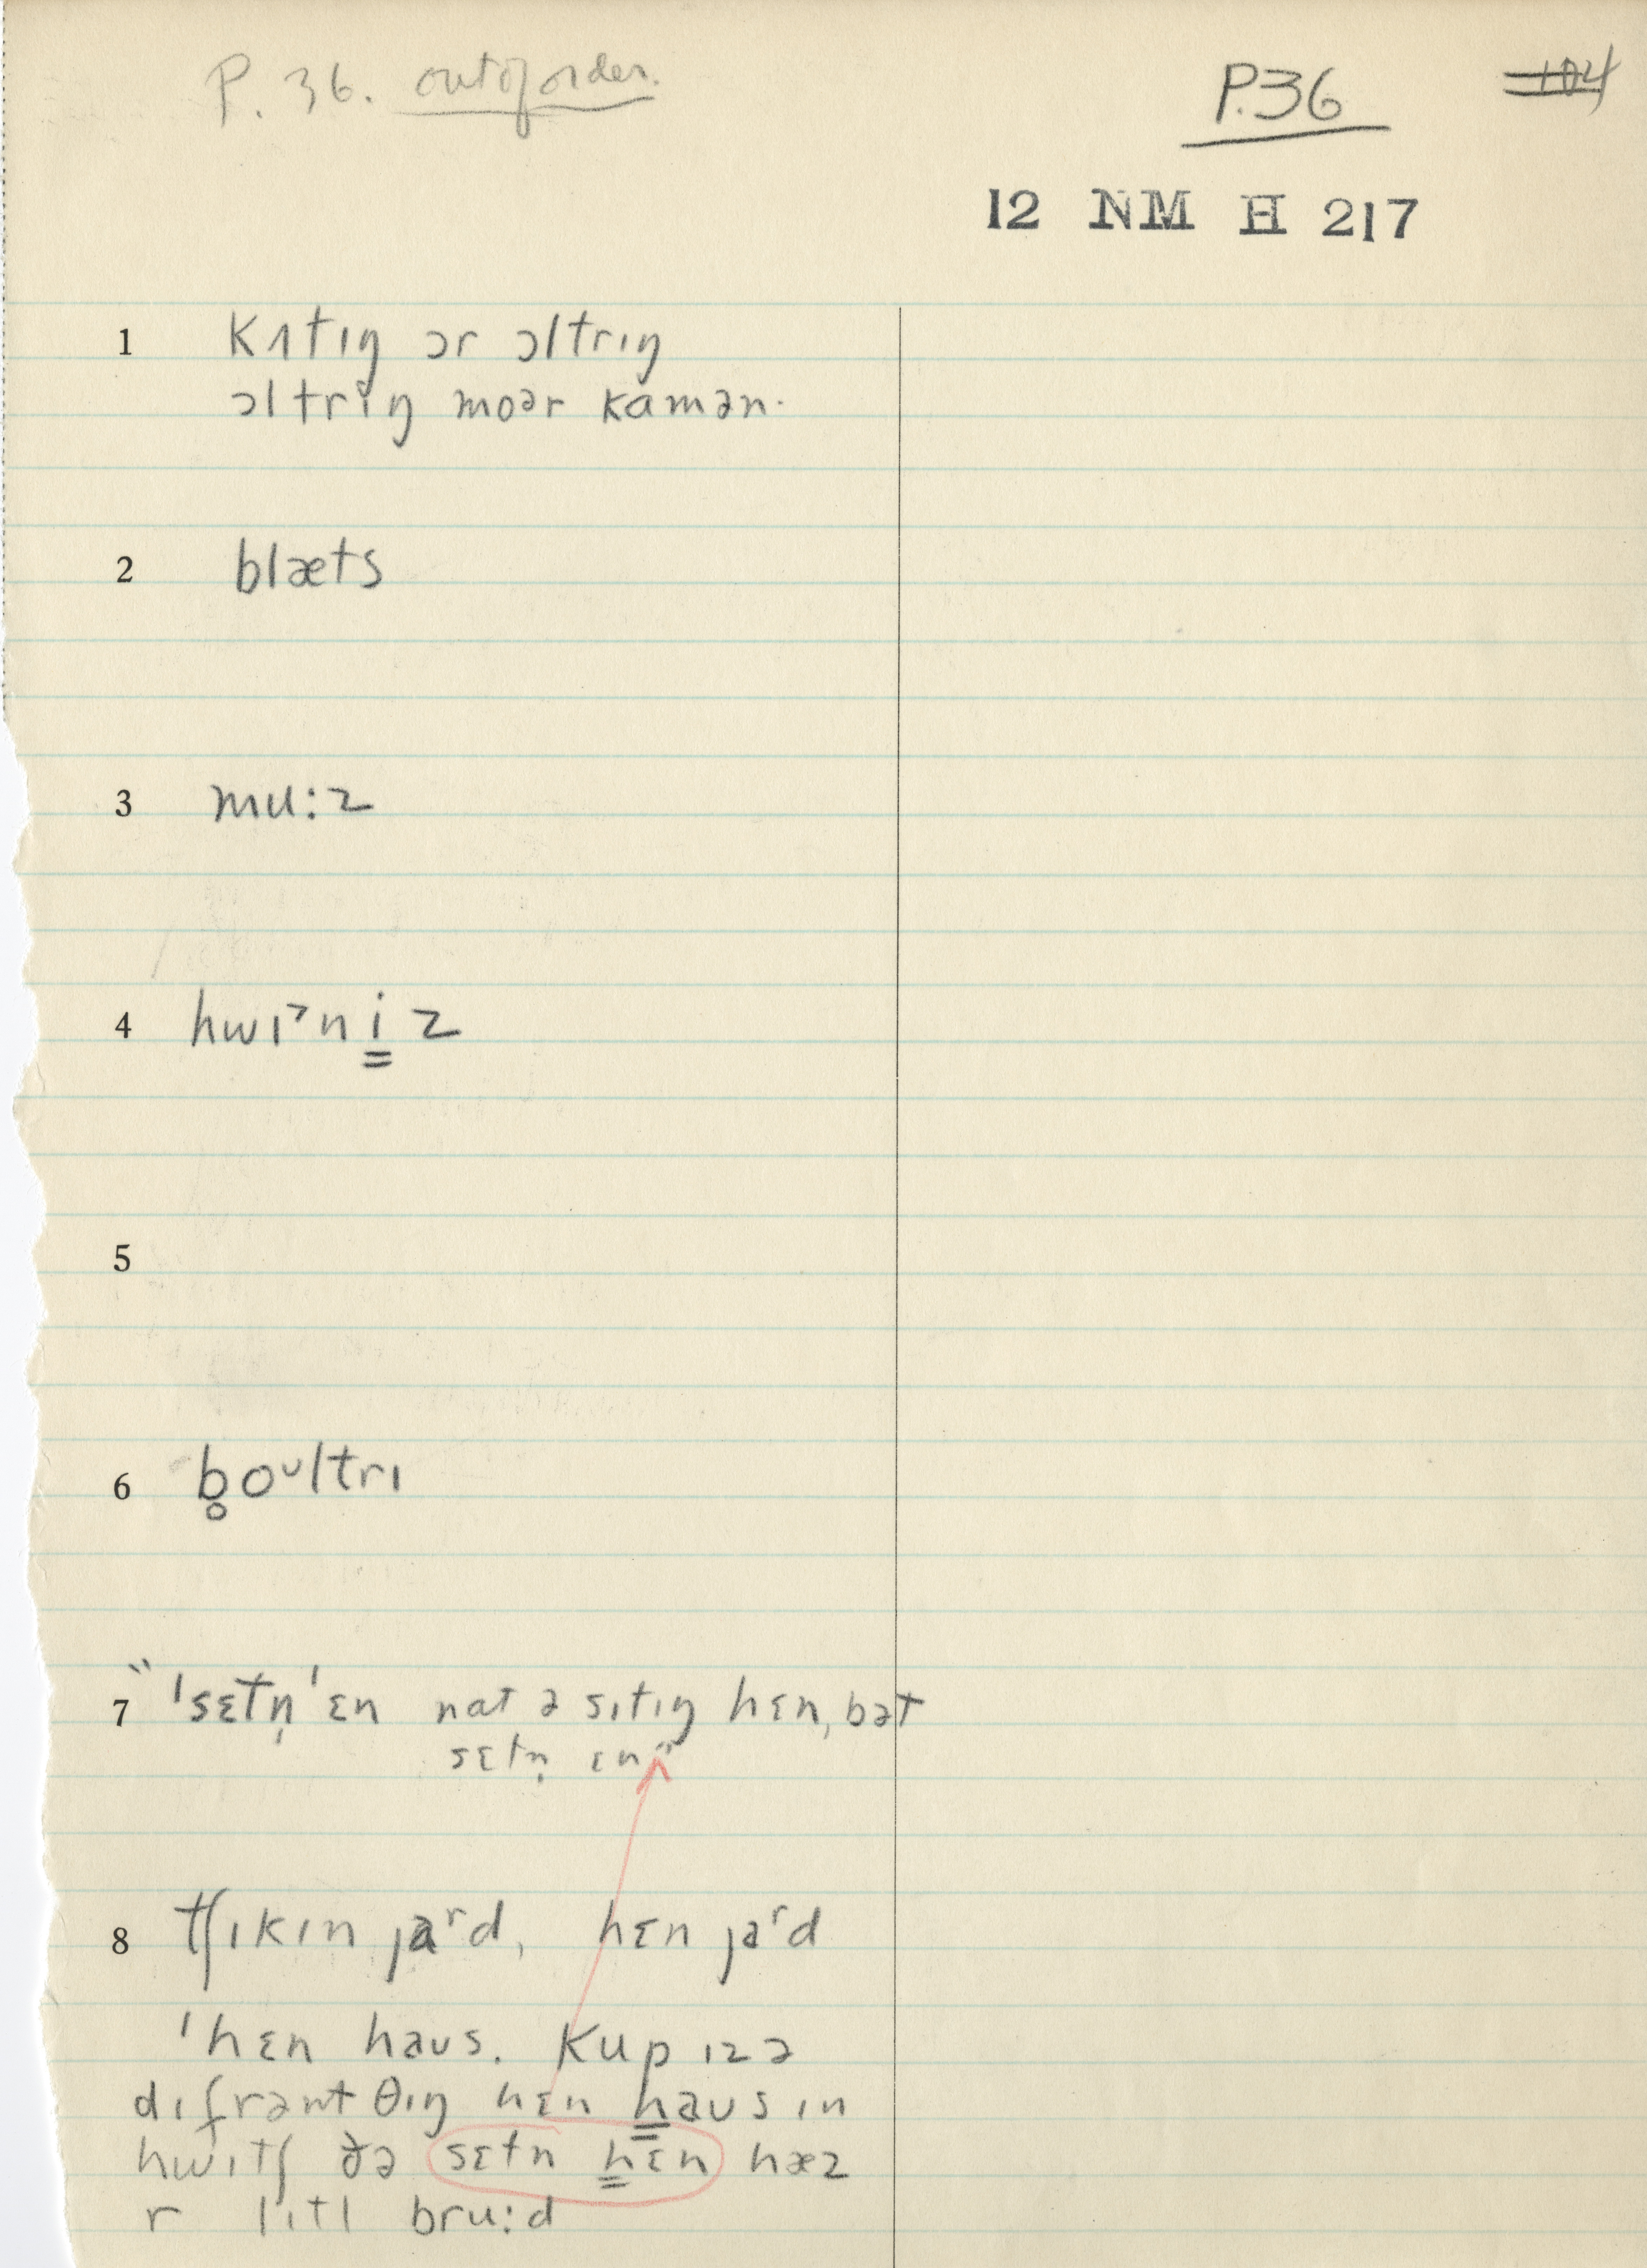 P. 36. out of order.
P.36
104
12 NM H 217
1 kʌtɪŋ ɔr ɔltrɪŋ
ɔltrɪŋ moər kamən.
2 blæts
3 mu:z
4 hwɪˀni̳z
5
6 b̥oᶸltrɪ
7 "ˈsɛtn̩ˈɛn nat ə sɪtɪŋ hɛn, bət
sɛtn̩ ɛn"
8 tʃɪkɪn jaʳd, hɛn jaʳd
ˈhɛn haus. kup ɪz ə
dɪfrənt θɪŋ hɛn h̳aus ɪn
hwɪtʃ ðə sɛtn h̳ɛn hæz
r lɪtl bru:d